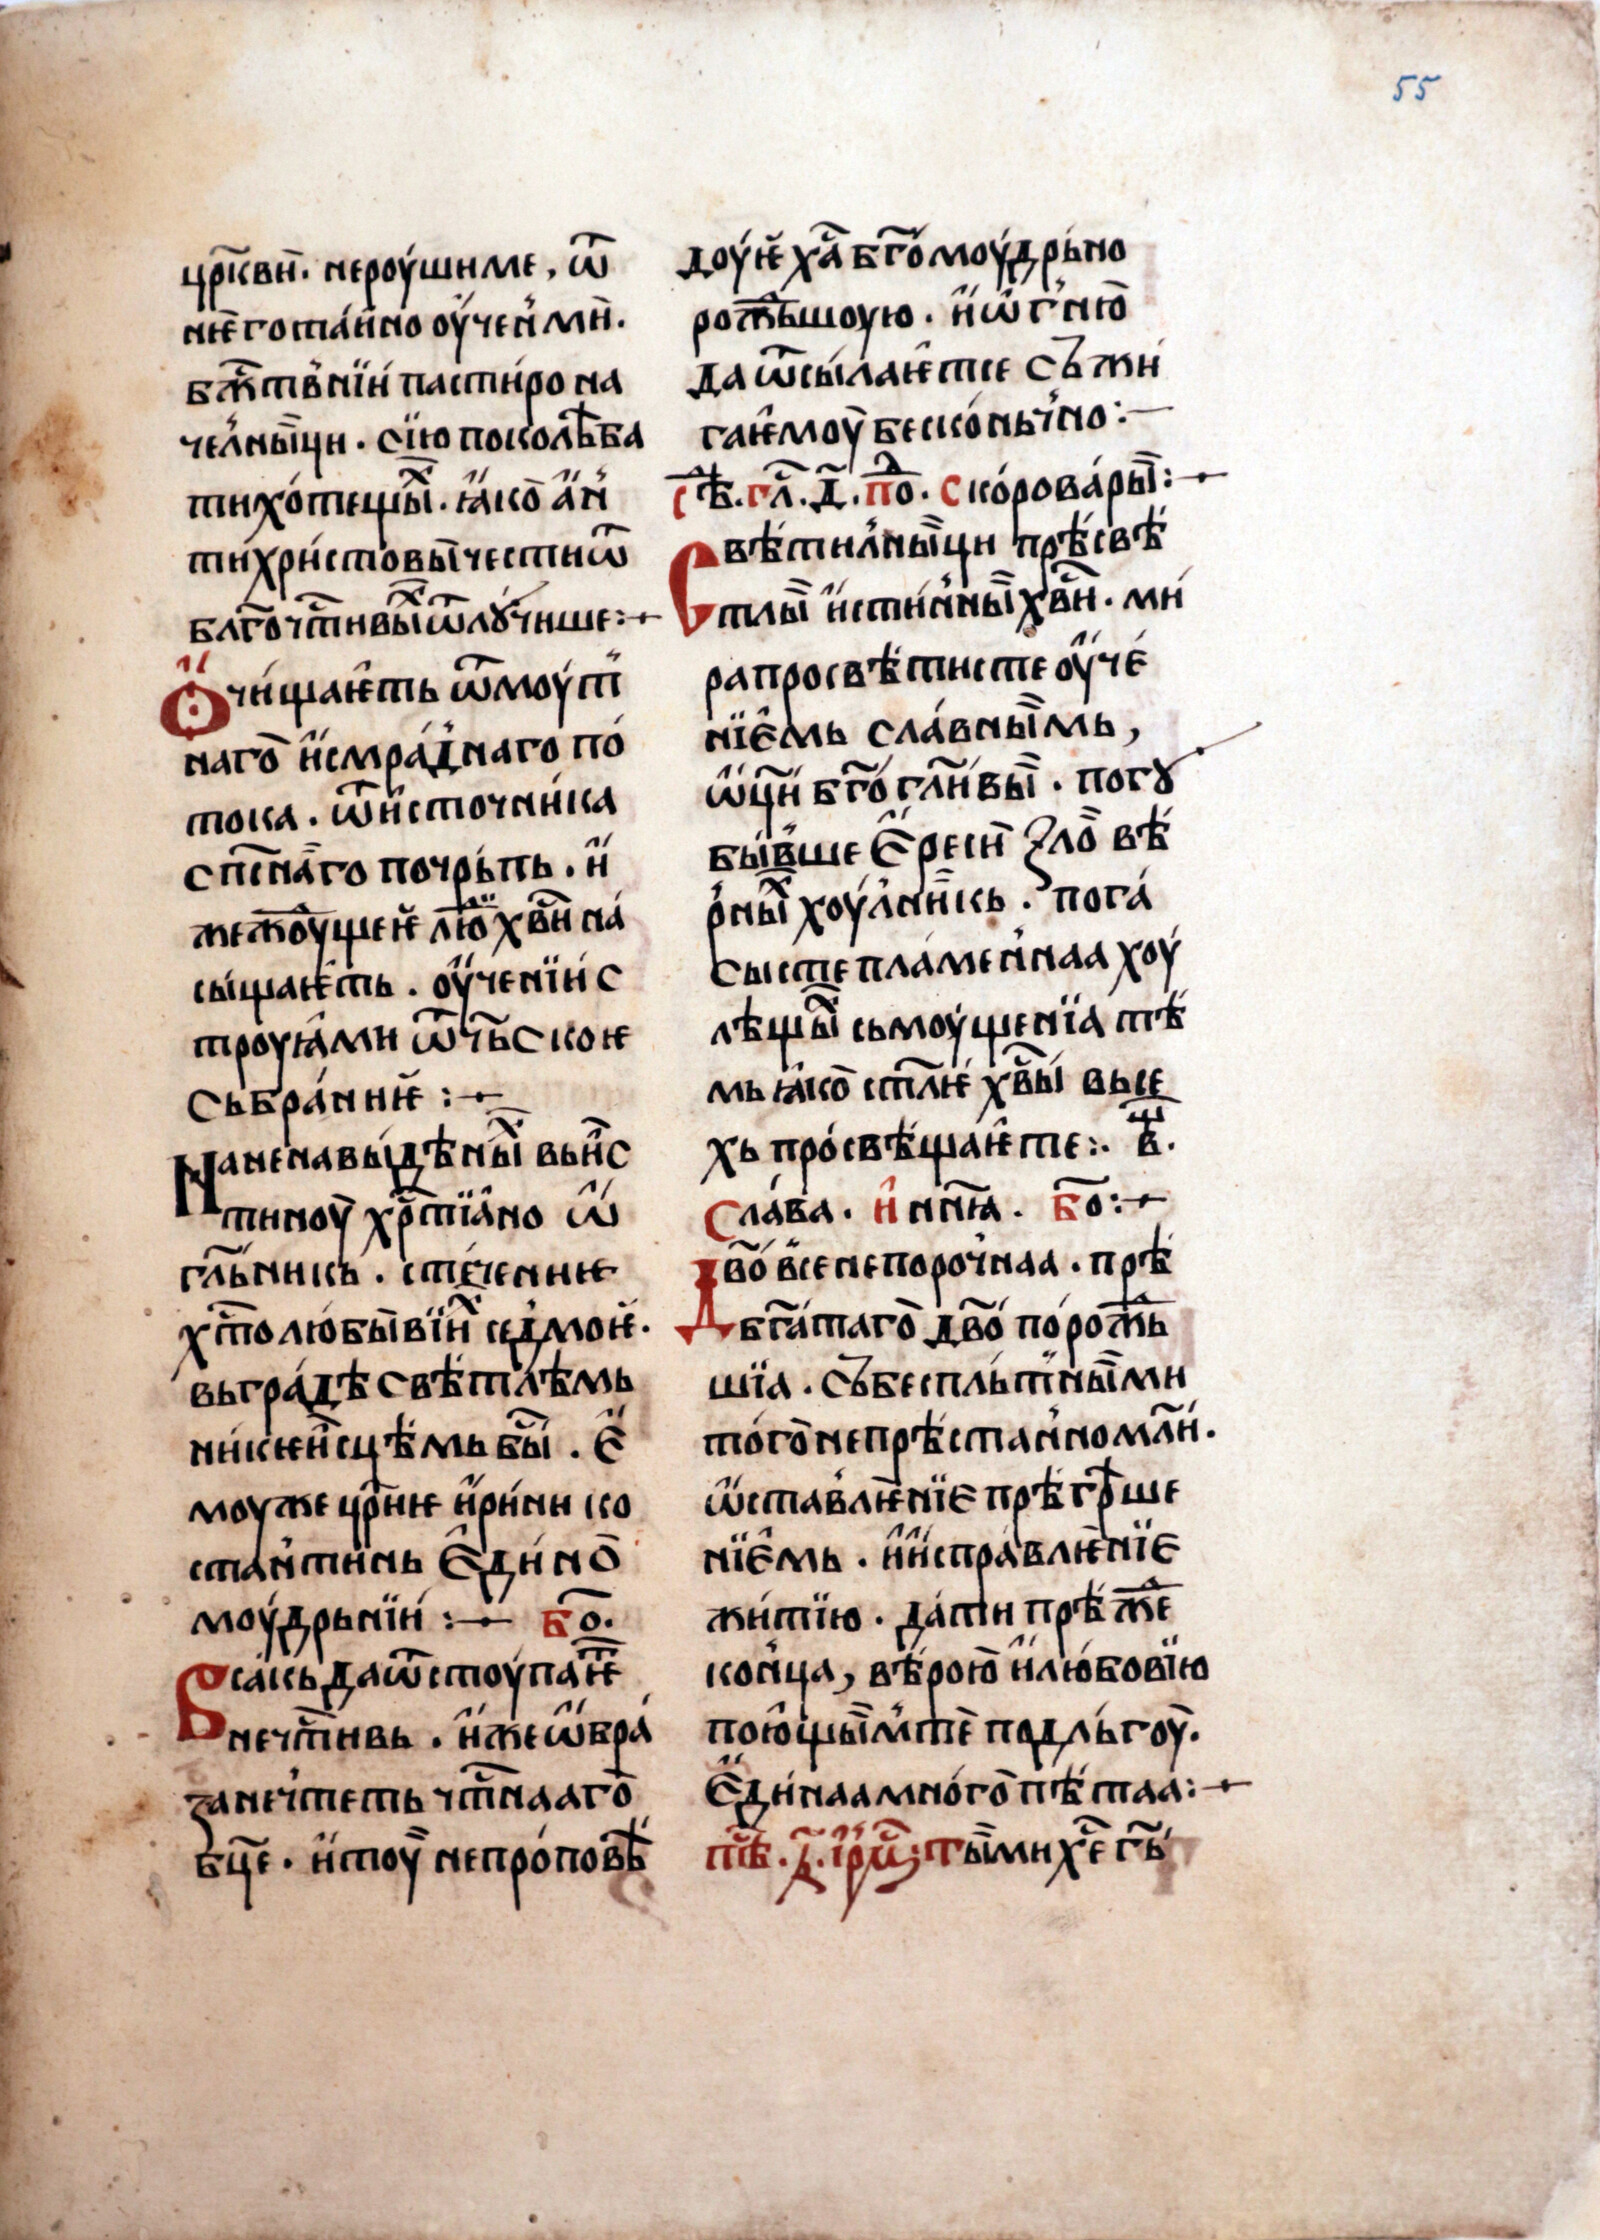 55
цр҃квѝ. нероу́шиме, ѿ
нѥ̀го та́йно оу҆чен҆мѝ.
бж҃тв҆нїи пасти́ро на
чел҆ны̏ци. сїю поколѣ́ба
ти хо́тещыⷯ. ꙗ҆ко̀ а҆н҆
ти́хри́стовы чести ѿ
бл҃гоч҃тивыⷯ ѿлꙋ́чише:~
Ѻ҆чи́щаѥть ѿ моу́т҆
наго̀ и҆ смра́д҆наго по́
тока. ѿ и҆сточни́ка
сп҃сна́го почрь́пь. и҆
же жⷣоущеѥ лю҃ⷣ хв҃ѝ на́
сыщаѥ҆ть. оу҆ченїи с
троуꙗ́ми ѿч҃ьскоѥ
събра́ниѥ:~
На ненавы́дѣныⷯ вь и҆с
тиноу̀ хр҃тїа҆но ѡ҆
гл҃ьникь. сте́чениѥ
хт҃олюбы̀вїиⷯ сед҆моѥ.
вь гра́дѣ свѣ́тлѣмь
ни́кѥи҆сцѣ́мь бы҃. є҆
моуже цр҃иѥ и҆ри́ни ко
стан҆ти́нь є҆ди́но̀
моу́дрьнїи:~ бо҃.
Всакь да ѿстоупаѥ҃т
неч҃тивь. и҆же ѡ҆бра́
за неч҆теть чт҃нааго̀
бц҃е. и҆ тоу̀ непро́повѣ́
доу́ѥ х҃а б҃гомоу́дрьно
рожⷣьшоую. и҆ ѡ҆г҆ню̀
да ѿсы́лаѥ҆тсе съ жи́
гаѥ҆моу̀ беско́ньч҆но:~
Сѣⷣ. гл҃. д҃. поⷣ. Ско́ро ва́ры̏:~
Свѣ́тил҆ны̏ци прѣ́свѣ́
тлы̏ и҆сти́н҆ны̏ хв҃ѝ. ми́
ра просвѣ́тисте оу҆че́
нїє҆мь сла́вны̏мь,
ѡ҆ц҃ѝ б҃гогл҃и́вы̏. погꙋ
бы́в҆ше є҆ресѝ ꙃло̀ вѣ́
р҆ныⷯ хоу́л҆ни̏кь. пога́
сысте пла́мен҆наа хоу́
лѣщыⷯ сьмоу́щенїа тѣ́
мь ꙗ҆ко̀ ст҃лѥ х҃вы́ вьсе
хь про́свѣ́щаѥ҆те:. в҃щ.
Сла́ва. и҆ нн҃ꙗ. бо҃:~
Дв҃о в҆се непороч҆наа. прѣ́
бг҃а́таго̀ дв҃о по́рожⷣь
шїа. съ беспль́т҆ны̏ми
то́го̀ непрѣ́стан҆но мл҃и́.
ѡ҆став҆лѥ̀нїє прѣ́грⷺше
нїє҆мь. и҆ и҆спра́влѥ̀нїє
жи́тїю. да́ти прѣ́жⷣе
кон҆ца, вѣ́рою̀ и҆ лю́бовїю
пою҆щы̏м҆ тѐ подль́гоу̀.
є҆ди́наа мно́го̀ пѣ́таа:~
пѣ҃с. д҃. і҆рмѡ҃: Ты̏ми х҃е г҃ь